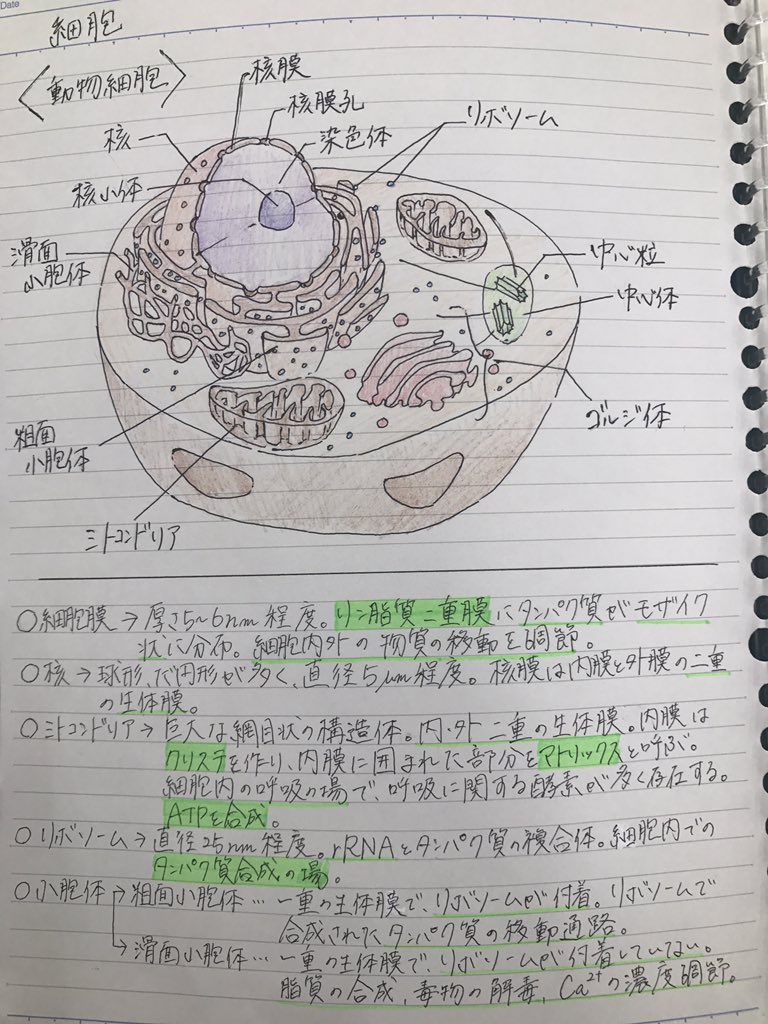 Date
細胞
〈動物細胞〉
核膜
核膜孔
染色体
リボソーム
核
核小体
滑面
小胞体
中心粒
中心体
ゴルジ体
粗面
小胞体
ミトコンドリア
○細胞膜→厚さ5~6nm程度。リン脂質二重膜にタンパク質がモザイク
状に分布。細胞内外の物質の移動を調節。
○核→球形、だ円形が多く、直径5μm程度。核膜は内膜と外膜の二重
の生体膜。
○ミトコンドリア→巨大な網目状の構造体。内・外二重の生体膜。内膜は
クリステを作り、内膜に囲まれた部分をマトリックスと呼ぶ。
細胞内の呼吸の場で、呼吸に関する酵素が多く存在する。
ATPを合成。
○リボソーム→直径25nm程度。rRNAとタンパク質の複合体。細胞内での
タンパク質合成の場。
○小胞体→粗面小胞体…一重の生体膜で、リボソームが付着。リボソームで
合成されたタンパク質の移動通路。
→滑面小胞体…一重の生体膜で、リボソームが付着していない。
脂質の合成、毒物の解毒、Ca²⁺の濃度調節。